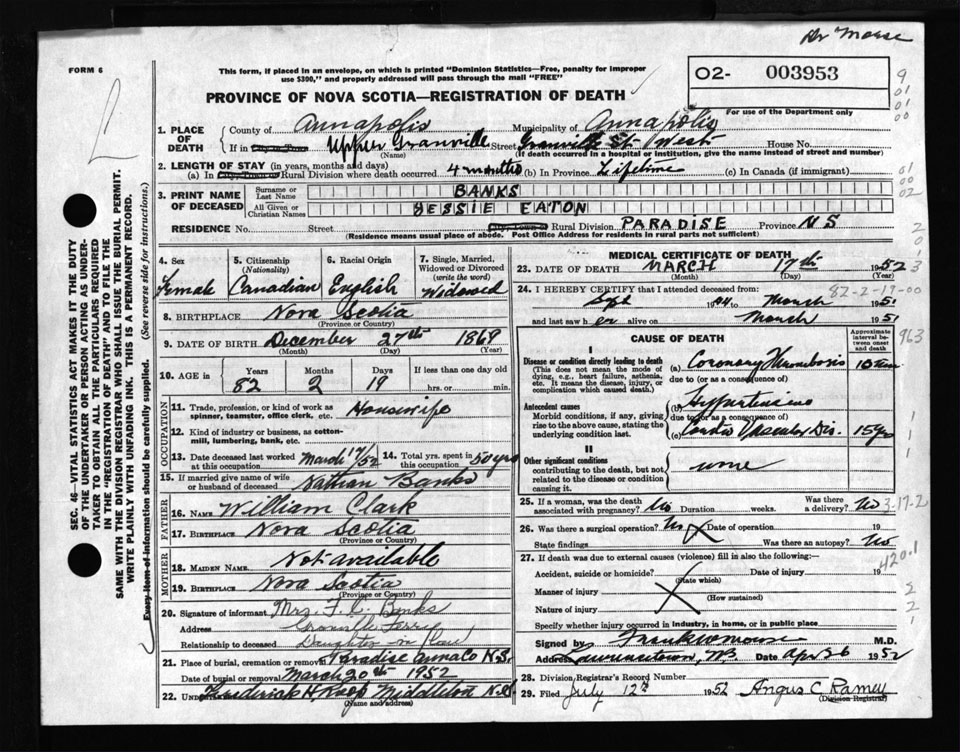 Dr Morse
FORM 6
This form, if placed in an envelope, on which is printed "Dominion Statistics—Free, penalty for improper
use $300," and properly addressed will pass through the mail "FREE"
02- 003953
PROVINCE OF NOVA SCOTIA—REGISTRATION OF DEATH
For use of the Department only
1. PLACE OF DEATH
County of Annapolis Municipality of Annapolis
If in City or Town Upper Granville Street Granville St. West House No.
(Name) (If death occurred in a hospital or institution, give the name instead of street and number)
2. LENGTH OF STAY (in years, months and days)
(a) In City, Town or Rural Division where death occurred 4 months (b) In Province Lifetime (c) In Canada (if immigrant)
3. PRINT NAME OF DECEASED
Surname or Last Name BANKS
All Given or Christian Names JESSIE EATON
RESIDENCE No. Street City, Town or Rural Division PARADISE Province N S
(Residence means usual place of abode. Post Office Address for residents in rural parts not sufficient)
4. Sex Female
5. Citizenship (Nationality) Canadian
6. Racial Origin English
7. Single, Married, Widowed or Divorced (write the word) Widowed
8. BIRTHPLACE Nova Scotia
(Province or Country)
9. DATE OF BIRTH December 27th 1869
(Month) (Day) (Year)
10. AGE in Years Months Days If less than one day old
82 2 19 hrs. or min.
OCCUPATION
11. Trade, profession, or kind of work as spinner, teamster, office clerk, etc. Housewife
12. Kind of industry or business, as cotton-mill, lumbering, bank, etc.
13. Date deceased last worked at this occupation March 17/52
14. Total yrs. spent in this occupation 50 yrs
15. If married give name of wife or husband of deceased Nathan Banks
FATHER
16. NAME William Clark
17. BIRTHPLACE Nova Scotia
(Province or Country)
MOTHER
18. MAIDEN NAME Not available
19. BIRTHPLACE Nova Scotia
(Province or Country)
20. Signature of informant Mrs. F. C. Banks
Address Granville Ferry
Relationship to deceased Daughter in law
21. Place of burial, cremation or removal Paradise Anna Co N.S.
Date of burial or removal March 20th 1952
22. Undertaker Frederick H. Roop Middleton N.S.
(Name and address)
MEDICAL CERTIFICATE OF DEATH
23. DATE OF DEATH MARCH 17th 1952
(Month) (Day) (Year)
24. I HEREBY CERTIFY that I attended deceased from:
Sept to March 1951
82-2-19-00
and last saw her alive on March 1951
CAUSE OF DEATH
Approximate interval between onset and death
I
Disease or condition directly leading to death
(This does not mean the mode of dying, e.g., heart failure, asthenia, etc. It means the disease, injury, or complication which caused death.)
(a) Coronary Thrombosis
due to (or as a consequence of)
Antecedent causes
Morbid conditions, if any, giving rise to the above cause, stating the underlying condition last.
(b)
due to (or as a consequence of)
(c) Cardio Vascular Dis. 15 yrs
II
Other significant conditions
contributing to the death, but not related to the disease or condition causing it.
none
25. If a woman, was the death associated with pregnancy? No Duration weeks. Was there a delivery? No
26. Was there a surgical operation? No Date of operation 19
State findings Was there an autopsy? No
27. If death due to external causes (violence) fill in also the following:—
Accident, suicide or homicide? Date of injury 19
(State which)
Manner of injury
(How sustained)
Nature of injury
Specify whether injury occurred in industry, in home, or in public place
Signed by Frank W Morse M.D.
Address Lawrencetown, N.S. Date Apr 26 1952
28. Division Registrar's Record Number
29. Filed July 12th 1952 Angus C. Ramey
(Division Registrar)
SEC. 46—VITAL STATISTICS ACT MAKES IT THE DUTY
OF THE UNDERTAKER OR PERSON ACTING AS UNDERTAKER TO OBTAIN ALL THE PARTICULARS REQUIRED
IN THE "REGISTRATION OF DEATH" AND TO FILE THE
SAME WITH THE DIVISION REGISTRAR WHO SHALL ISSUE THE BURIAL PERMIT.
WRITE PLAINLY WITH UNFADING INK. THIS IS A PERMANENT RECORD.
Every item of information should be carefully supplied. (See reverse side for instructions.)
963
3-17-2
420.1